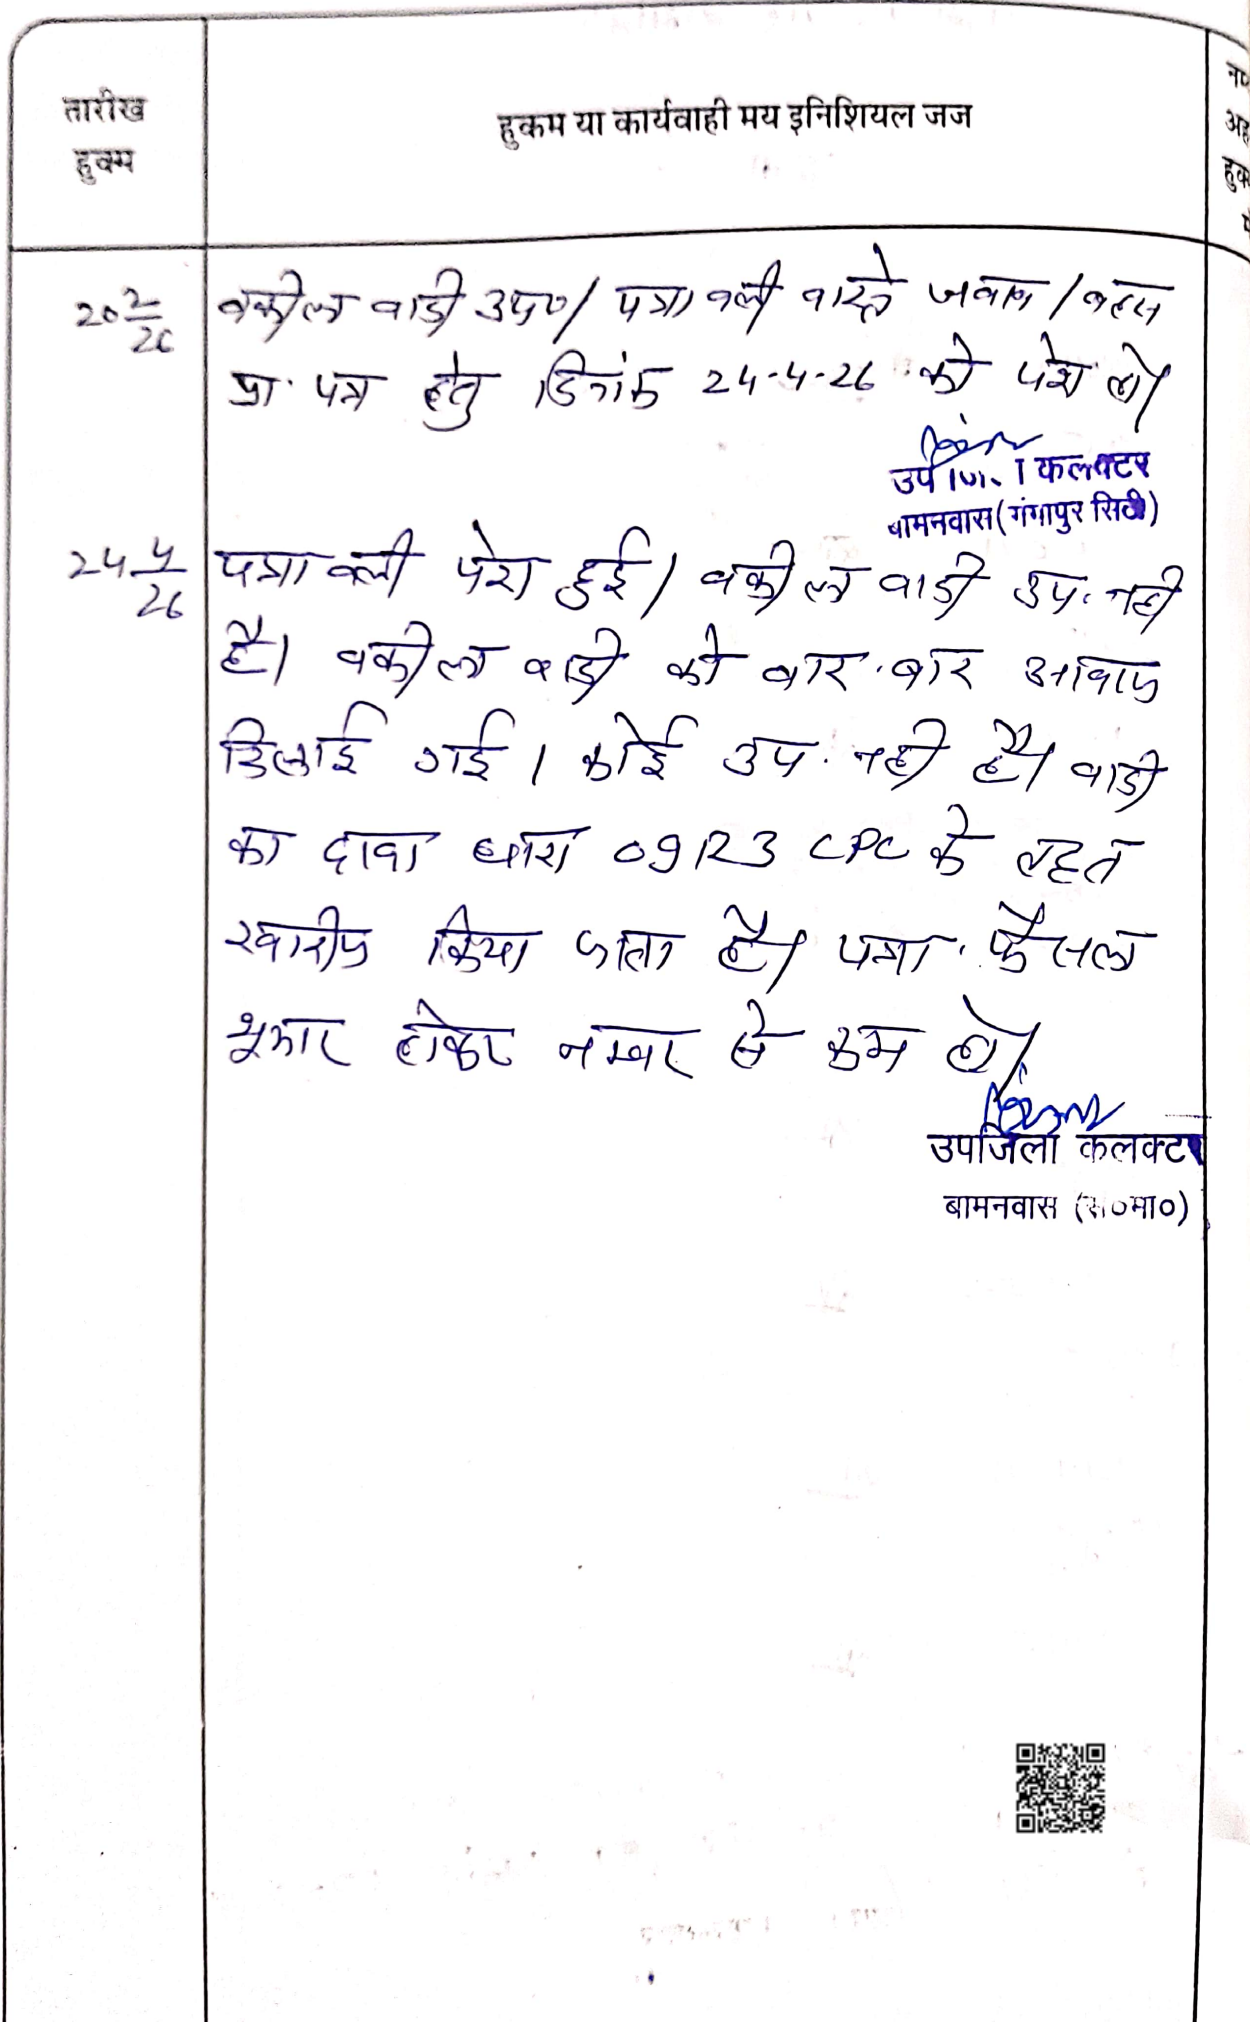 तारीख
हुक्म
हुकम या कार्यवाही मय इनिशियल जज
20 2/26
वकील वादी उप०/ पत्रावली वास्ते जवाब/बहस
प्रा. पत्र हेतु दिनांक 24-4-26 को पेश हो।
कलक्टर
बामनवास(गंगापुर सिटी)
24 4/26
पत्रावली पेश हुई। वकील वादी उप. नही
है। वकील वादी को बार-बार आवाज
दिलाई गई। कोई उप. नही है। वादी
का दावा धारा 09R3 CPC के तहत
खारीज किया जाता है। पत्रा. फैसल
शूमार होकर नम्बर से कम हो।
उपजिला कलक्टर
बामनवास (स०मा०)